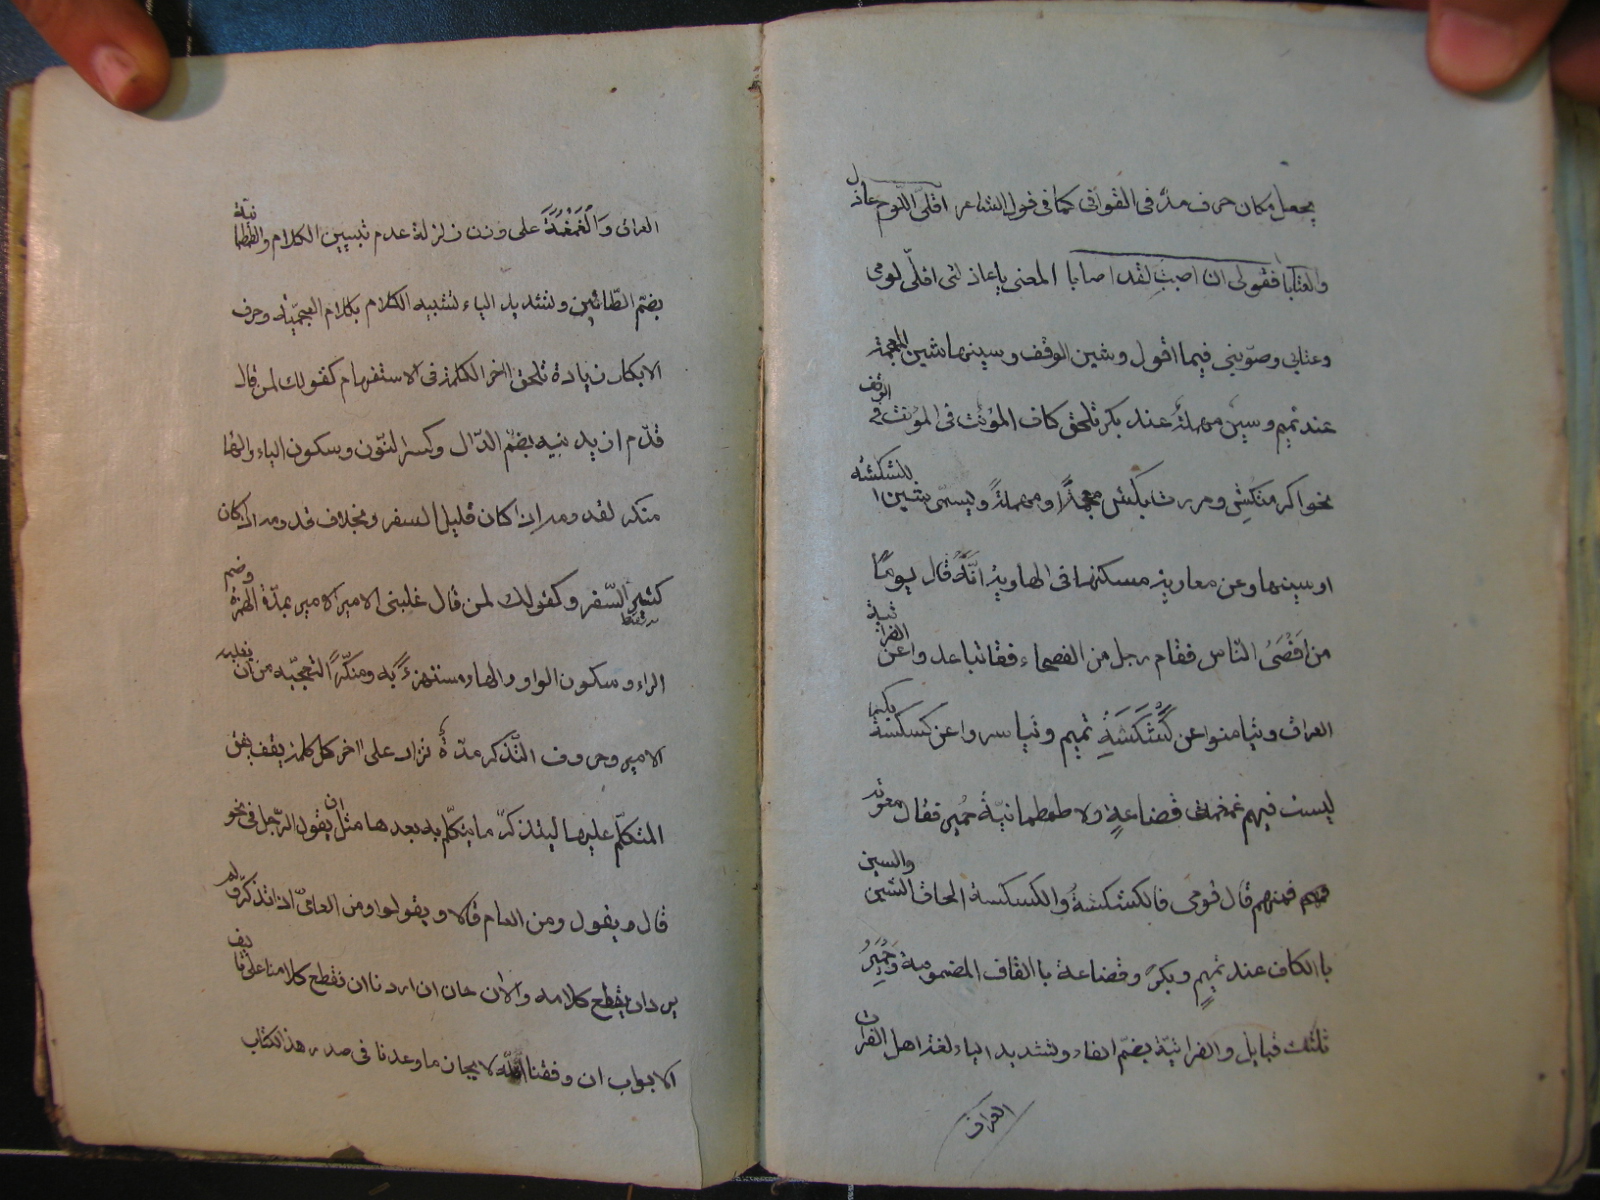 يجعل مكان حرف مدّ في القوافي كما في قول الشاعر اقلّى اللّوم عاذل
والعتابا فقولى ان اصبت لقد اصابا المعنى يا عاذلتى اقلّى لومى
وعتابى وصوّبينى فيما اقول وشين الوقف وسينها شين المعجمة
عند تميم وسين مهملة عند بكر تلحق كاف المؤنث فى المؤنث فى الوقف
نحو اكرمتكش ومررت بكش معجمًا ومهملةً ويسمّى بشين الكشكشه
او سينها وعن معاوية مسكنها فى الهاوية انّه قال يومًا
من افصح النّاس فقام رجل من الفصحاء فقا تباعدوا عن الفراتية
العراق وتيامنوا عن كشكشة تميم وتياسروا عن كسكسة بكر
ليست فيهم غمغمة قضاعةٍ ولا طمطمانيّة حمير فقال معوية
فمنهم قال قومى فالكشكشة والكسكسة الحاق الشين والسين
با الكاف عند تميمٍ وبكرً وقضاعة با القاف المضمومة وحمير
ثلثت قبايل والفراتيّة بضمّ الفاء وتشديد الياء لغة اهل الفرات
العراق
العراق والغمغمة على وزن زلزلة عدم تبيين الكلام والطمطمانيّة
بضمّ الطّائين وتشديد الياء تشبيه الكلام بكلام العجميّة وحرف
الانكار زيادة تلحق اآخر الكلمة فى الاستفهام كقولك لمن قال
قدّم ازيد نيه بضمّ الدّال وكسر النّون وسكون الياء والها
منكر لقدومه ان كان قليل السفر وبخلاف قدومه ان كان
كثير السّفر وكقولك لمن قال غلبنى الامير الاميروه بمدّة الهمزة وضم
الراء وسكون الواو والهاء مستهزءً به ومنكّرًا لتعجّبه من ان يغلبه
الامير وحروف التّذكر مدّة تزاد على اآخر كل كلمة يقف
المتكلّم عليها ليتذكرّ ما يتكلّم به بعدها مثل ان يقول الرّجل فى نحو
قال ويقول ومن العام قالا ويقولوا ومن العامى اذا تذكّر ولم
يرد ان يقطع كلامه والان حان ان اردنا ان نقطع كلامنا على
الابواب ان وفقنا الله لايجان ما وعدنا فى صدر هذ الكتاب